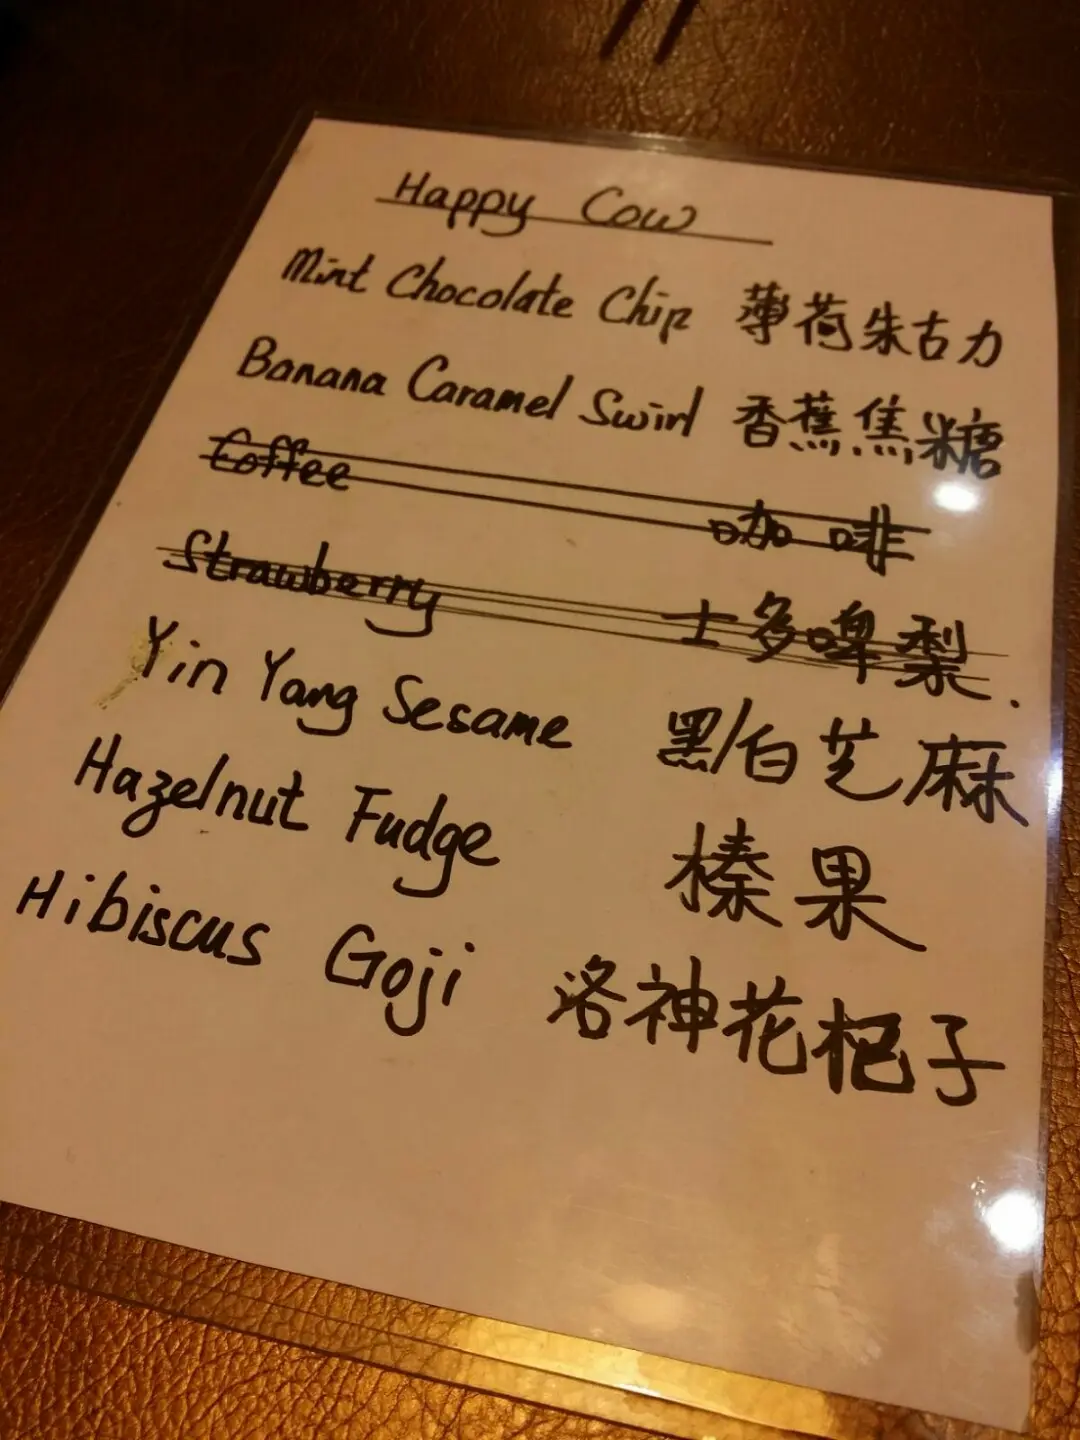 Happy Cow
Mint Chocolate Chip 薄荷朱古力
Banana Caramel Swirl 香蕉焦糖
Coffee 咖啡
Strawberry 士多啤梨.
Yin Yang Sesame 黑/白芝麻
Hazelnut Fudge 榛果
Hibiscus Goji 洛神花杞子